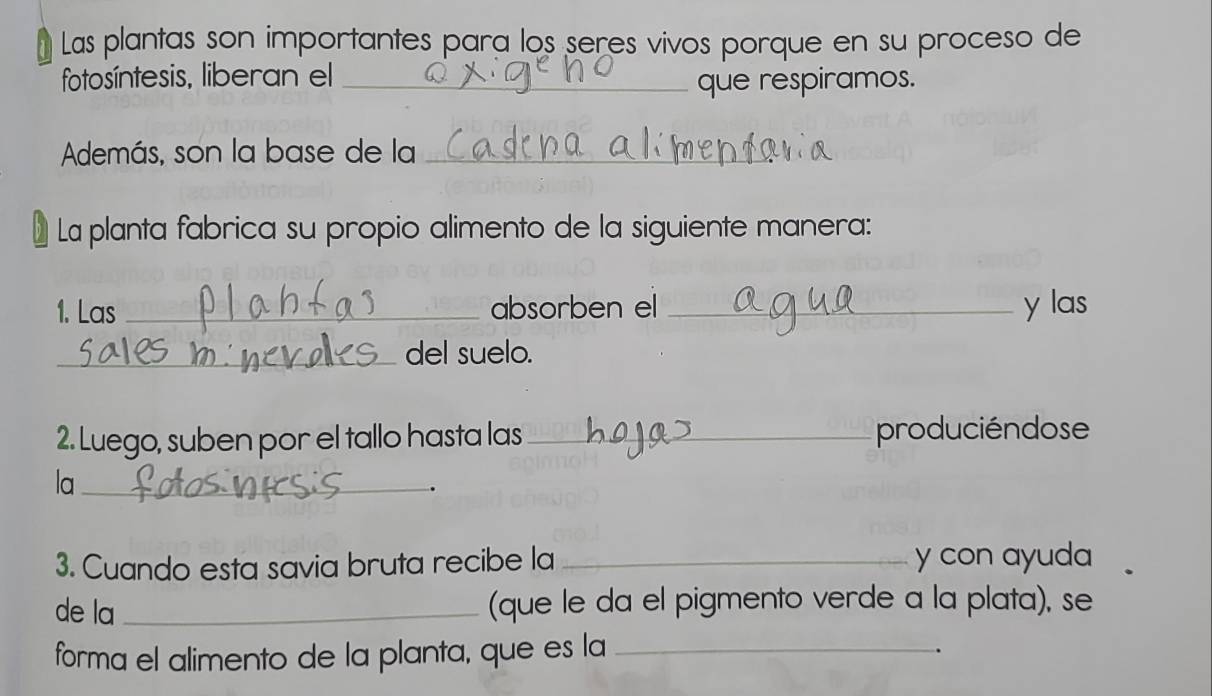 Las plantas son importantes para los seres vivos porque en su proceso de
fotosíntesis, liberan el oxigeno que respiramos.
Además, son la base de la Cadena alimentaria
La planta fabrica su propio alimento de la siguiente manera:
1. Las plantas absorben el agua y las
sales minerales del suelo.
2. Luego, suben por el tallo hasta las hojas produciéndose
la fotosintesis.
3. Cuando esta savia bruta recibe la ______ y con ayuda
de la ______ (que le da el pigmento verde a la plata), se
forma el alimento de la planta, que es la ______.